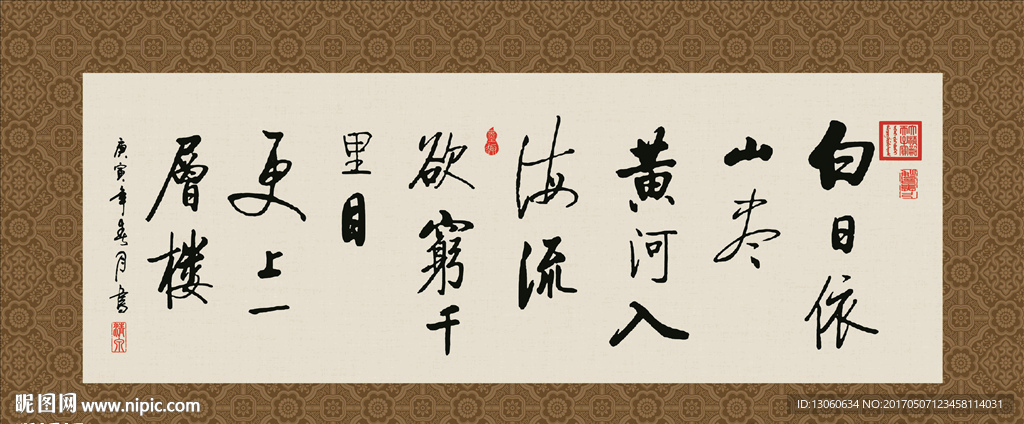 白日依
山尽
黄河入
海流
欲窮千
里目
更上一
層樓
庚寅年春月書
昵图网 www.nipic.com
ID:13060634 NO:20170507123458114031